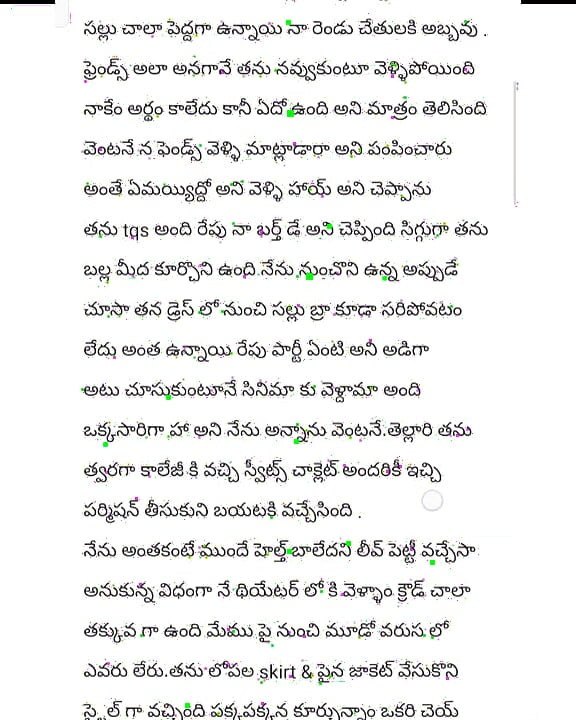 సల్లు చాలా పెద్దగా ఉన్నాయి నా రెండు చేతులకి అబ్బవు .
ఫ్రెండ్స్ అలా అనగానే తను నవ్వుకుంటూ వెళ్ళిపోయింది
నాకేం అర్థం కాలేదు కానీ ఏదో ఉంది అని మాత్రం తెలిసింది
వెంటనే న ఫెండ్స్ వెళ్ళి మాట్లాడారా అని పంపించారు
అంతే ఏమయ్యిద్దో అని వెళ్ళి హాయ్ అని చెప్పాను
తను tqs అంది రేపు నా బర్త్ డే అని చెప్పింది సిగ్గుగా తను
బల్ల మీద కూర్చొని ఉంది నేను నుంచొని ఉన్న అప్పుడే
చూసా తన డ్రెస్ లో నుంచి సల్లు బ్రా కూడా సరిపోవటం
లేదు అంత ఉన్నాయి రేపు పార్టీ ఏంటి అని అడిగా
అటు చూసుకుంటూనే సినిమా కు వెళ్దామా అంది
ఒక్కసారిగా హా అని నేను అన్నాను వెంటనే.తెల్లారి తను
త్వరగా కాలేజీ కి వచ్చి స్వీట్స్ చాక్లెట్ అందరికీ ఇచ్చి
పర్మిషన్ తీసుకుని బయటకి వచ్చేసింది .
నేను అంతకంటే ముందే హెల్త్ బాలేదని లీవ్ పెట్టి వచ్చేసా
అనుకున్న విధంగా నే థియేటర్ లో కి వెళ్ళాం క్రౌడ్ చాలా
తక్కువ గా ఉంది మేము పై నుంచి మూడో వరుస లో
ఎవరు లేరు.తను లోపల skirt & పైన జాకెట్ వేసుకొని
స్టైల్ గా వచ్చింది పక్కపక్కన కూర్చున్నాం ఒకరి చెయ్